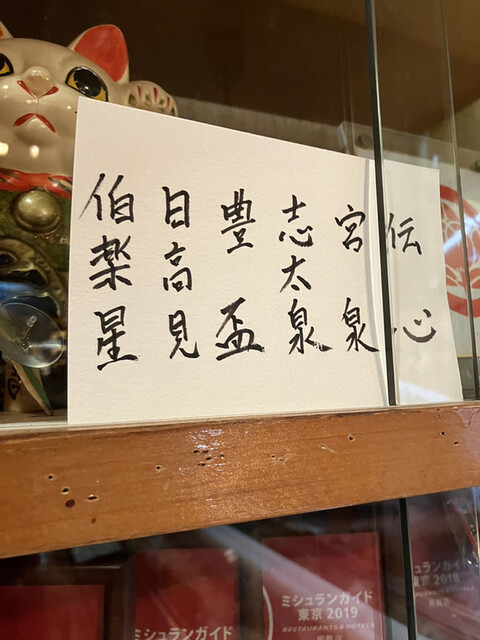 伝心
宮泉
志太泉
豊盃
日高見
伯楽星
ミシュランガイド
ミシュランガイド
東京 2019
RESTAURANTS & HOTELS
ミシュランガイド
東京 2018